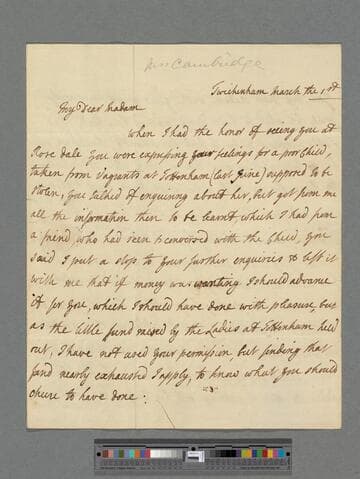 Mrs Cambridge
Twickenham March the 1st
My Dear Madam
When I had the honor of seeing you at
Rose dale you were expressing your feelings for a poor Child,
taken from Vagrants at Tottenham (last June) supposed to be
stolen, you talked of enquiring about her, but got from me
all the information then to be learnt which I had from
a friend, who had seen & conversed with the Child, you
said I put a stop to your further enquiries & left it
with me that if money was wanting I should advance
it for you, which I should have done with pleasure, but
as the little fund raised by the Ladies at Tottenham held
out, I have not used your permission, but finding that
fund nearly exhausted I apply, to know what you should
chuse to have done: